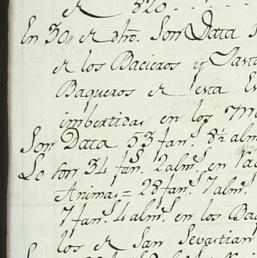 de 820
En 30 de dho. Son Data
de los Bacieros y
Baqueros de esta
imbertidas en los
Son Data 53 fan.s 8½ alm
Lo son 34 fan.s 2 alm.s en
Animas = 28 fan.s 7 alm.s
7 fan.s 4 alm.s en los Ba
los de San Sevastian